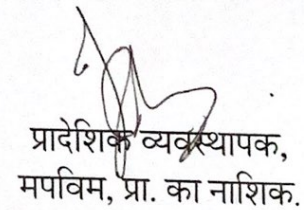 प्रादेशिक व्यवस्थापक,
मपविम, प्रा. का नाशिक.